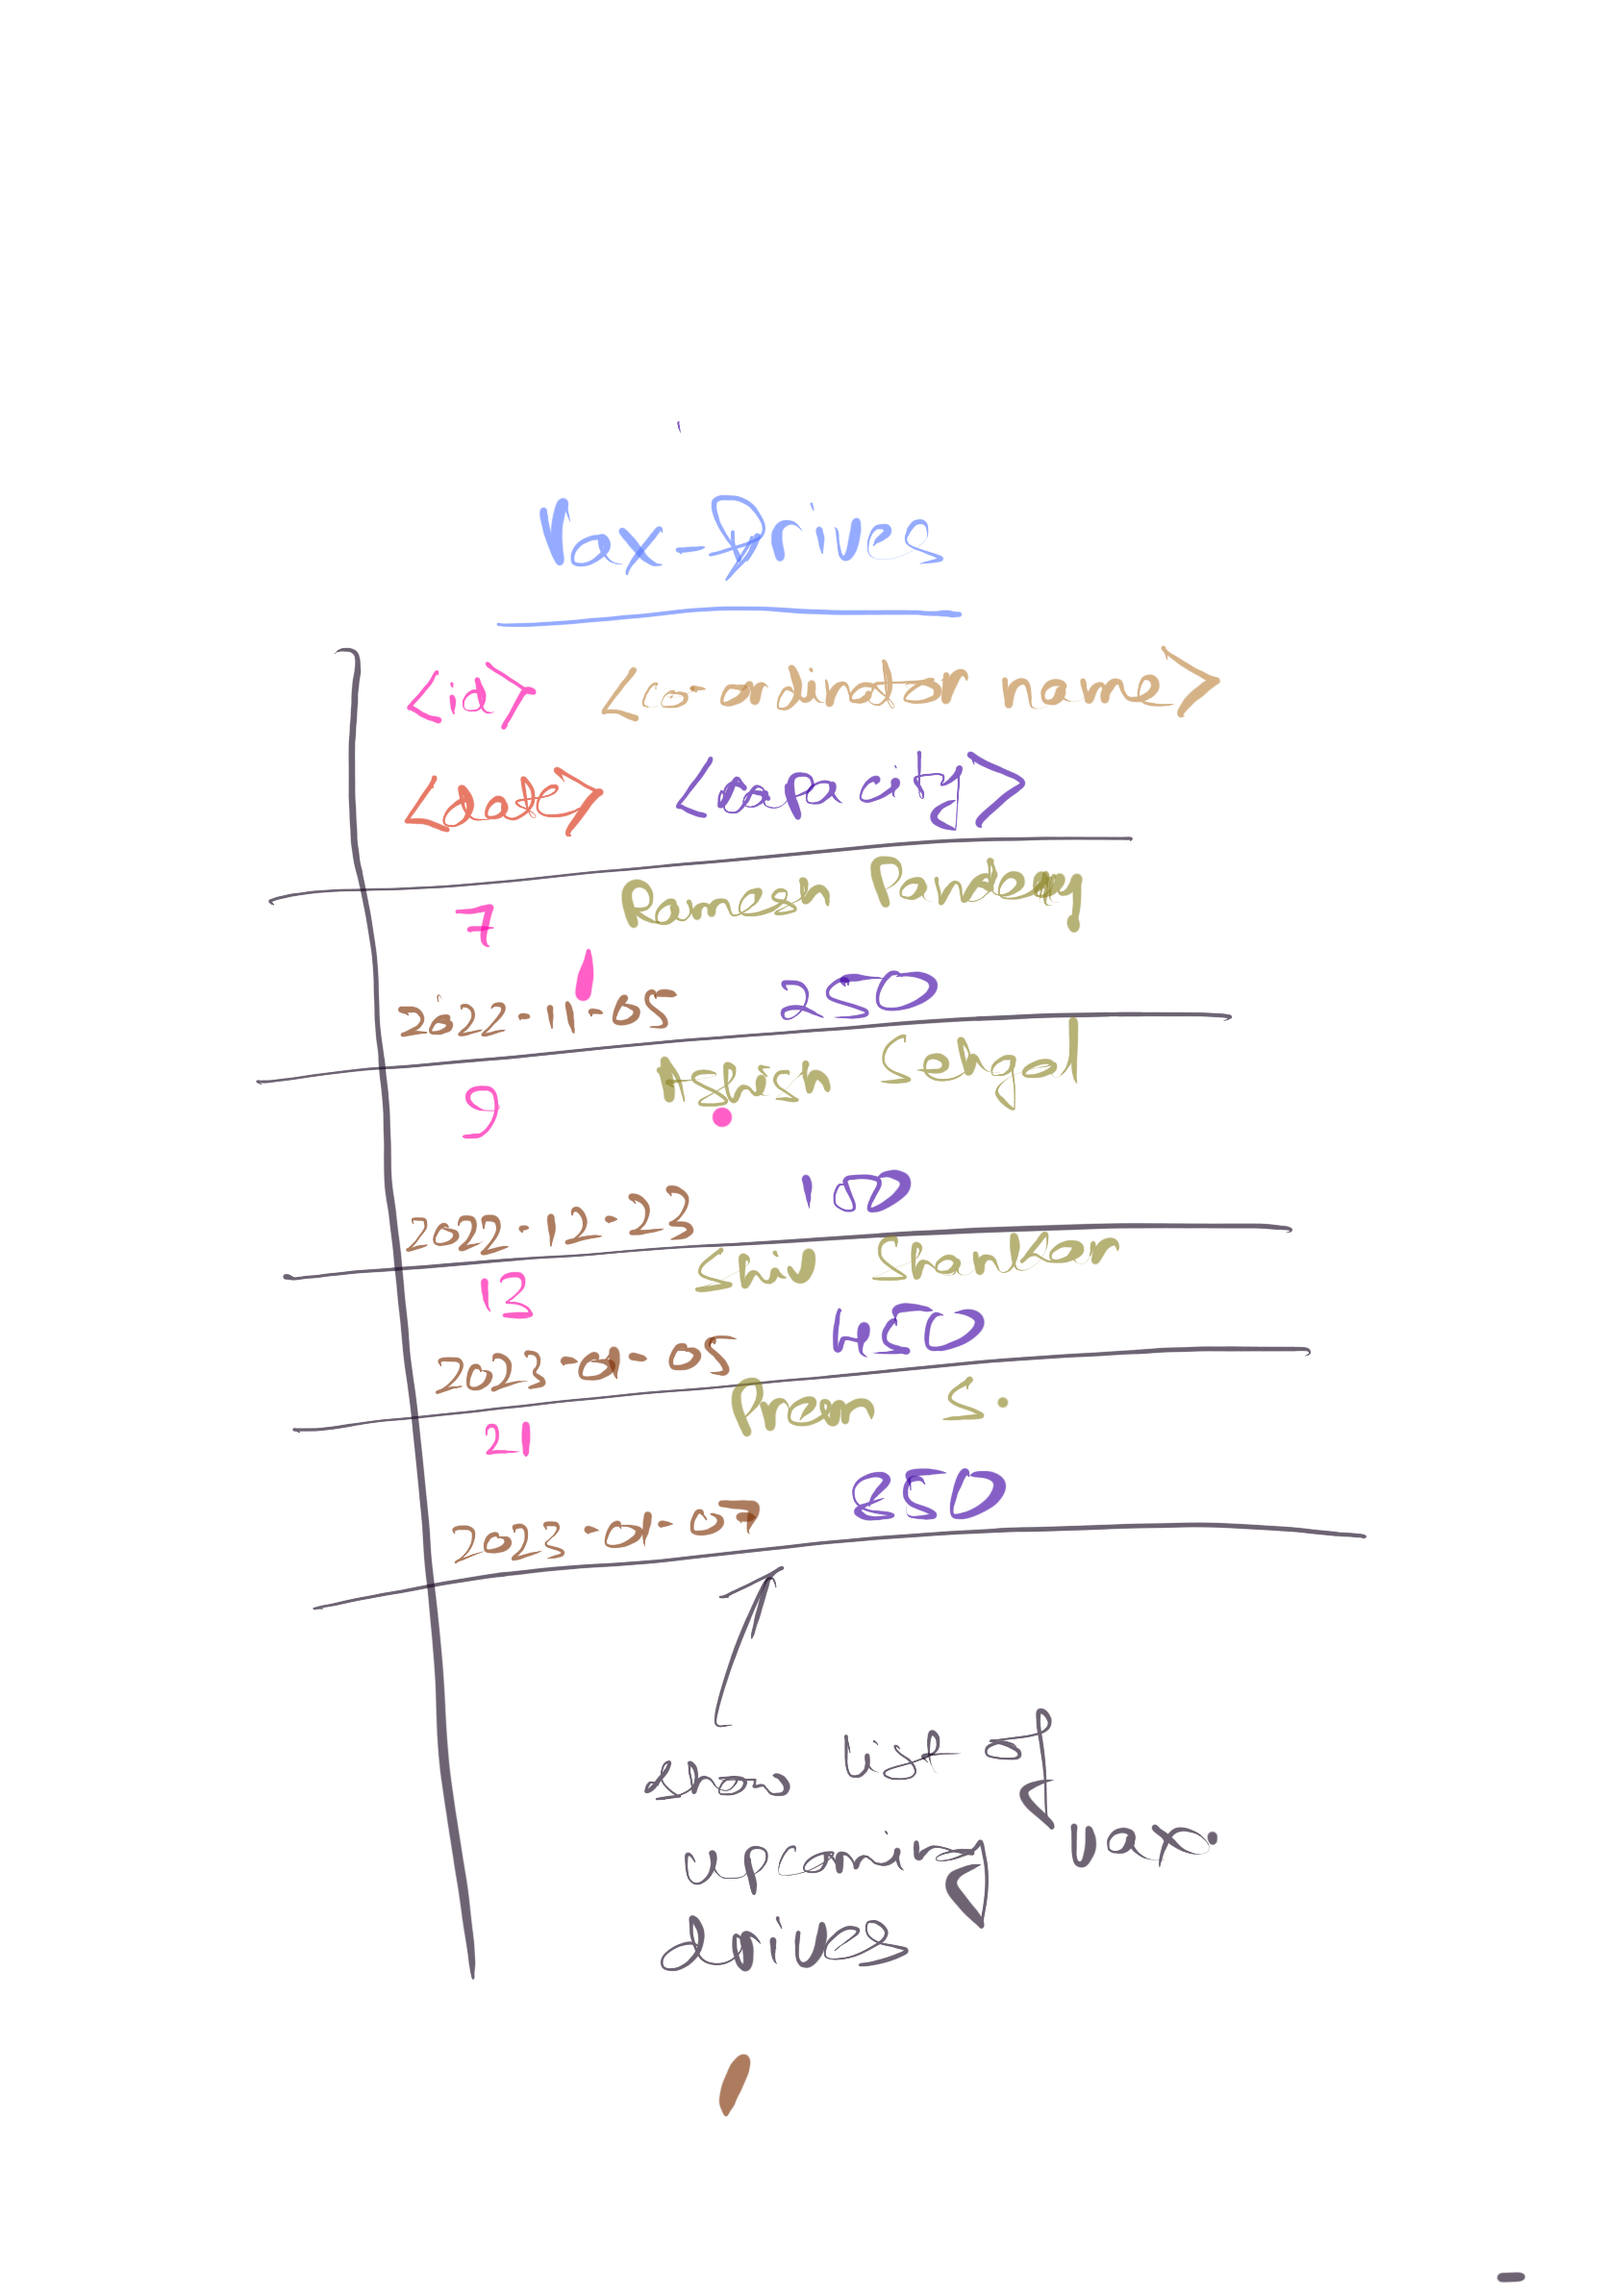 Vax-Drives
<id> <co-ordinator name>
<date> <capacity>
7 Ramesh Pandey
2022-11-05 250
9 Sehgal
2022-12-23 100
13 Shiv Shankar
2023-01-05 450
21 Prem S.
2023-01-07 850
show list of
upcoming vax.
drives